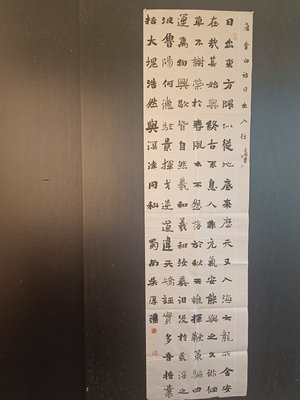 唐李白詩日出入行
日出東方隈似從地底來歷天又入海六龍所舍安
在哉其始與終古不息人非元氣安能與之久徘徊
草不謝榮於春風木不怨落於秋天誰揮鞭策驅四
運萬物興歇皆自然羲和羲和汝奚汩没於荒淫之
波魯陽何德駐景揮戈逆道違天矯誣實多吾將囊
括大塊浩然與溟涬同科 蜀南吳厚